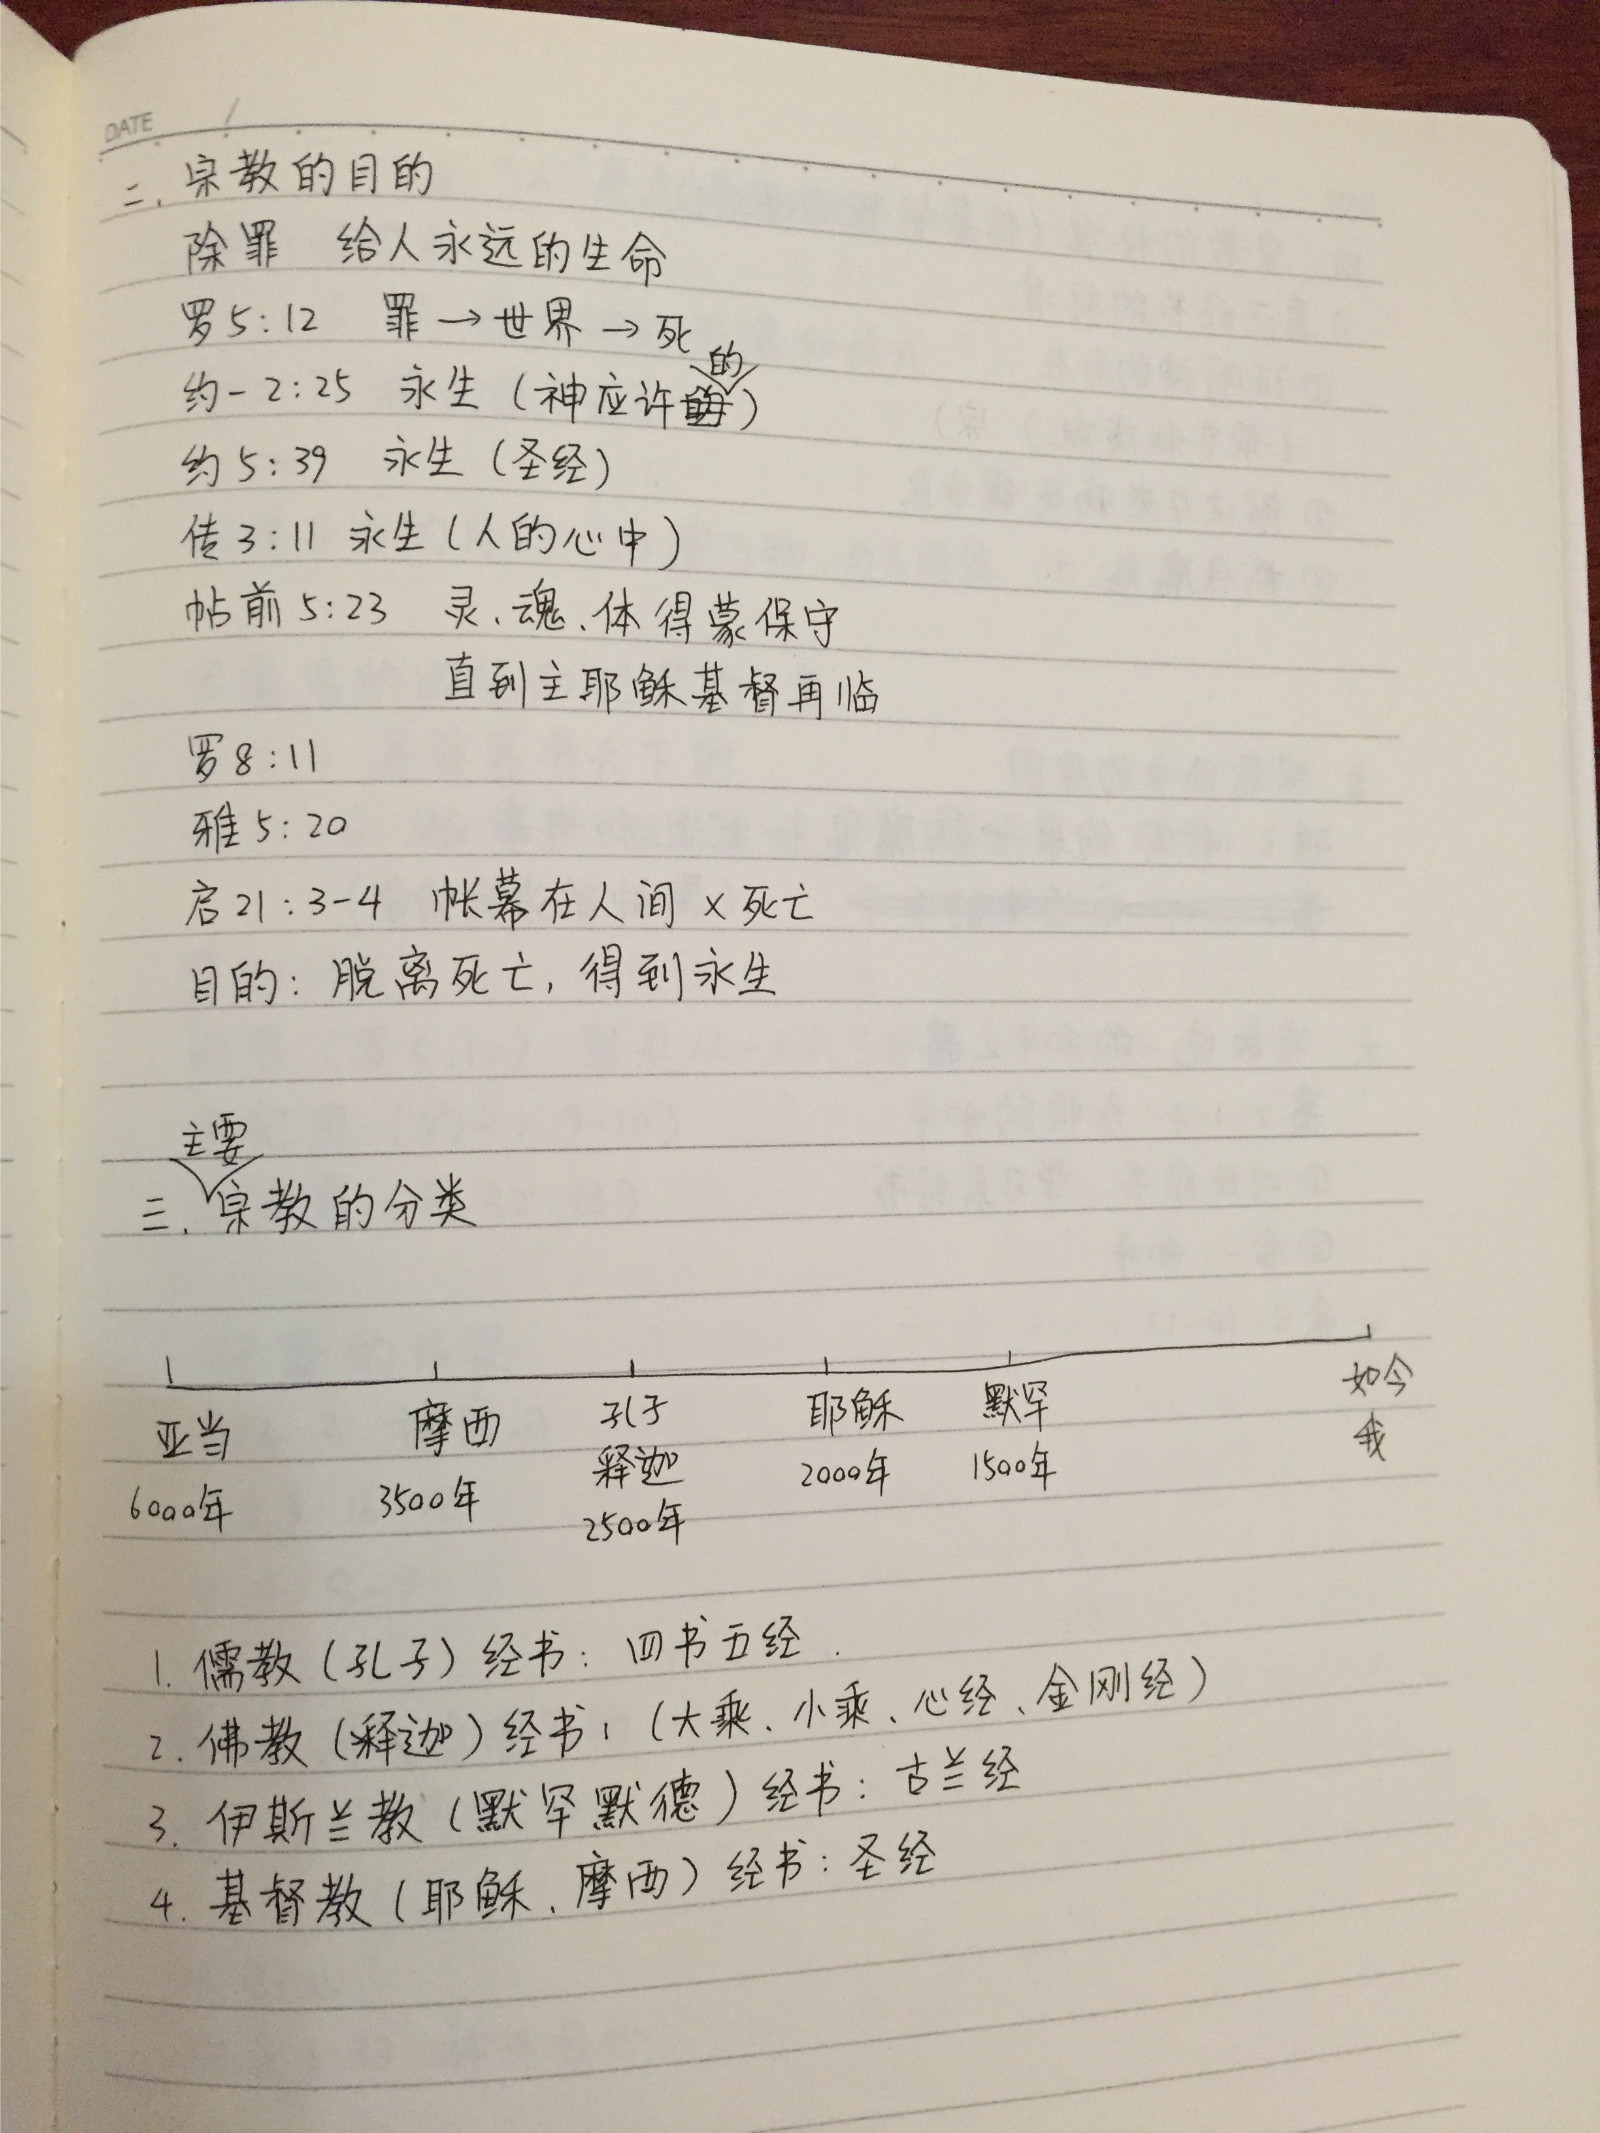 DATE /
二. 宗教的目的
除罪 给人永远的生命
罗5:12 罪→世界→死
约一2:25 永生(神应许的)
约5:39 永生(圣经)
传3:11 永生(人的心中)
帖前5:23 灵、魂、体得蒙保守
直到主耶稣基督再临
罗8:11
雅5:20
启21:3-4 帐幕在人间 x死亡
目的: 脱离死亡, 得到永生
三. 主要宗教的分类
亚当 摩西 孔子 耶稣 默罕 如今
释迦 我
6000年 3500年 2500年 2000年 1500年
1. 儒教(孔子)经书: 四书五经.
2. 佛教(释迦)经书: (大乘、小乘、心经、金刚经)
3. 伊斯兰教(默罕默德)经书: 古兰经
4. 基督教(耶稣、摩西)经书: 圣经